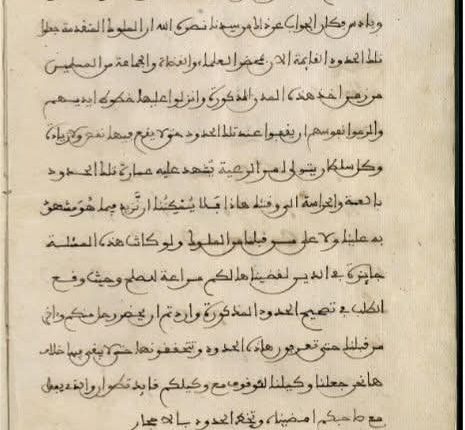 وبادس فكان الجواب عن ذلك من سيدنا نصره الله ان الملوك المتقدمة جعلوا
تلك الحدود القايمة الان بمحضر العلماء والقضاة والجماعة من المسلمين
من زمن اخذ هذه المدن المذكورة وانزلوا عليها خطوط ايديهم
والزموا نفوسهم ان يقفوا عند تلك الحدود حتى لا يقع فيها نقص ولا زيادة
وكل سلطان يتولى امر الرعية تشهد عليه عمارة تلك الحدود
بالعسة والحراسة الى وقتنا هاذا فلا يمكننا ان نزيد فيما هو مشهود
به علينا ولا على من قبلنا من الملوك ولو كانت هذه المسئلة
جايزة في الدين لقضيناها لكم مراعة للصلح وحيث وقع
الطلب في تصحيح الحدود المذكورة واردتم ان يحضر رجل منكم وءاخر
من قبلنا حتى تعرفون هاذه الحدود وتتحققونها حتى لا يبقى فيها خلاف
ها نحن جعلنا وكيلنا للوقوف مع وكيلكم فابد تطوان والذي يفعل
مع صاحبكم امضيناه وتخدم الحدود بالاحجار